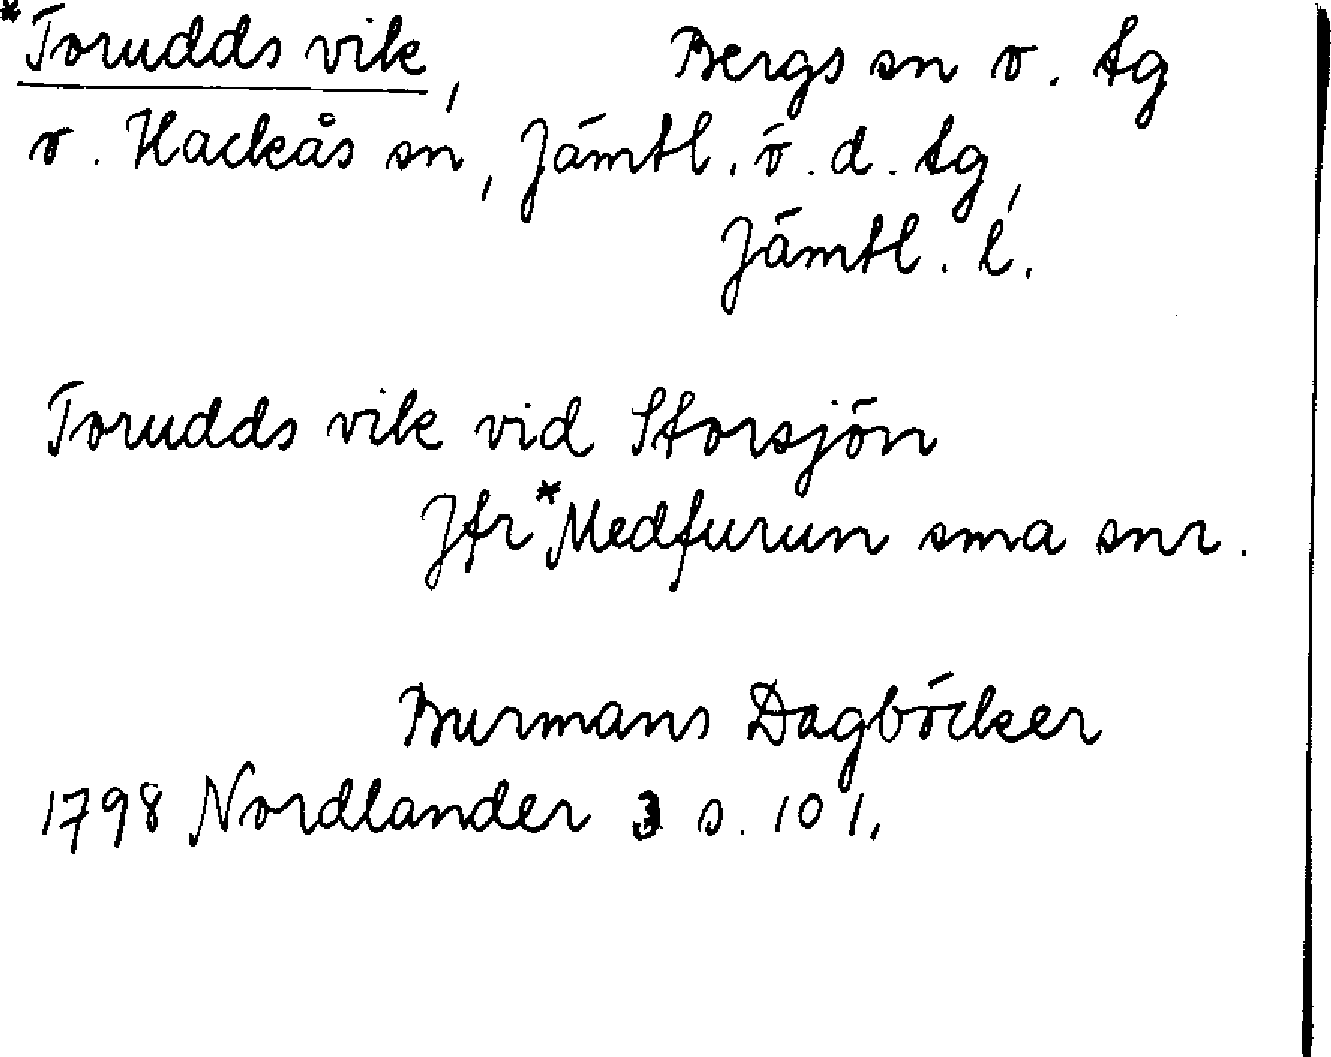 *Torudds vik, Bergs sn o. tg
o. Hackås sn, Jämtl. ö. d. tg,
Jämtl. l.
Torudds vik vid Storsjön
Jfr *Medfurun sma snr.
Burmans Dagböcker
1798 Nordlander 3 s. 101.